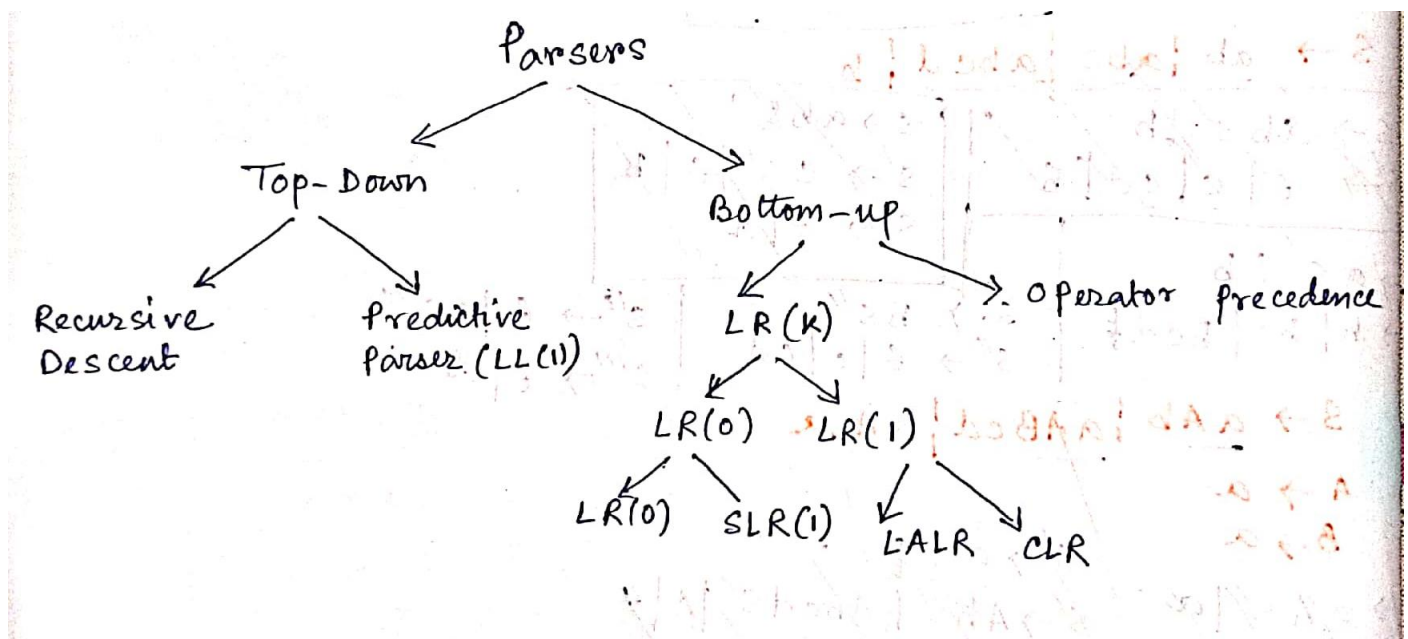 Parsers
Top-Down
Bottom-up
Recursive
Descent
Predictive
Parser (LL(1))
LR(K)
Operator Precedence
LR(0)
LR(1)
LR(0)
SLR(1)
LALR
CLR
S → aAb | aABcd |
A → a
B → a